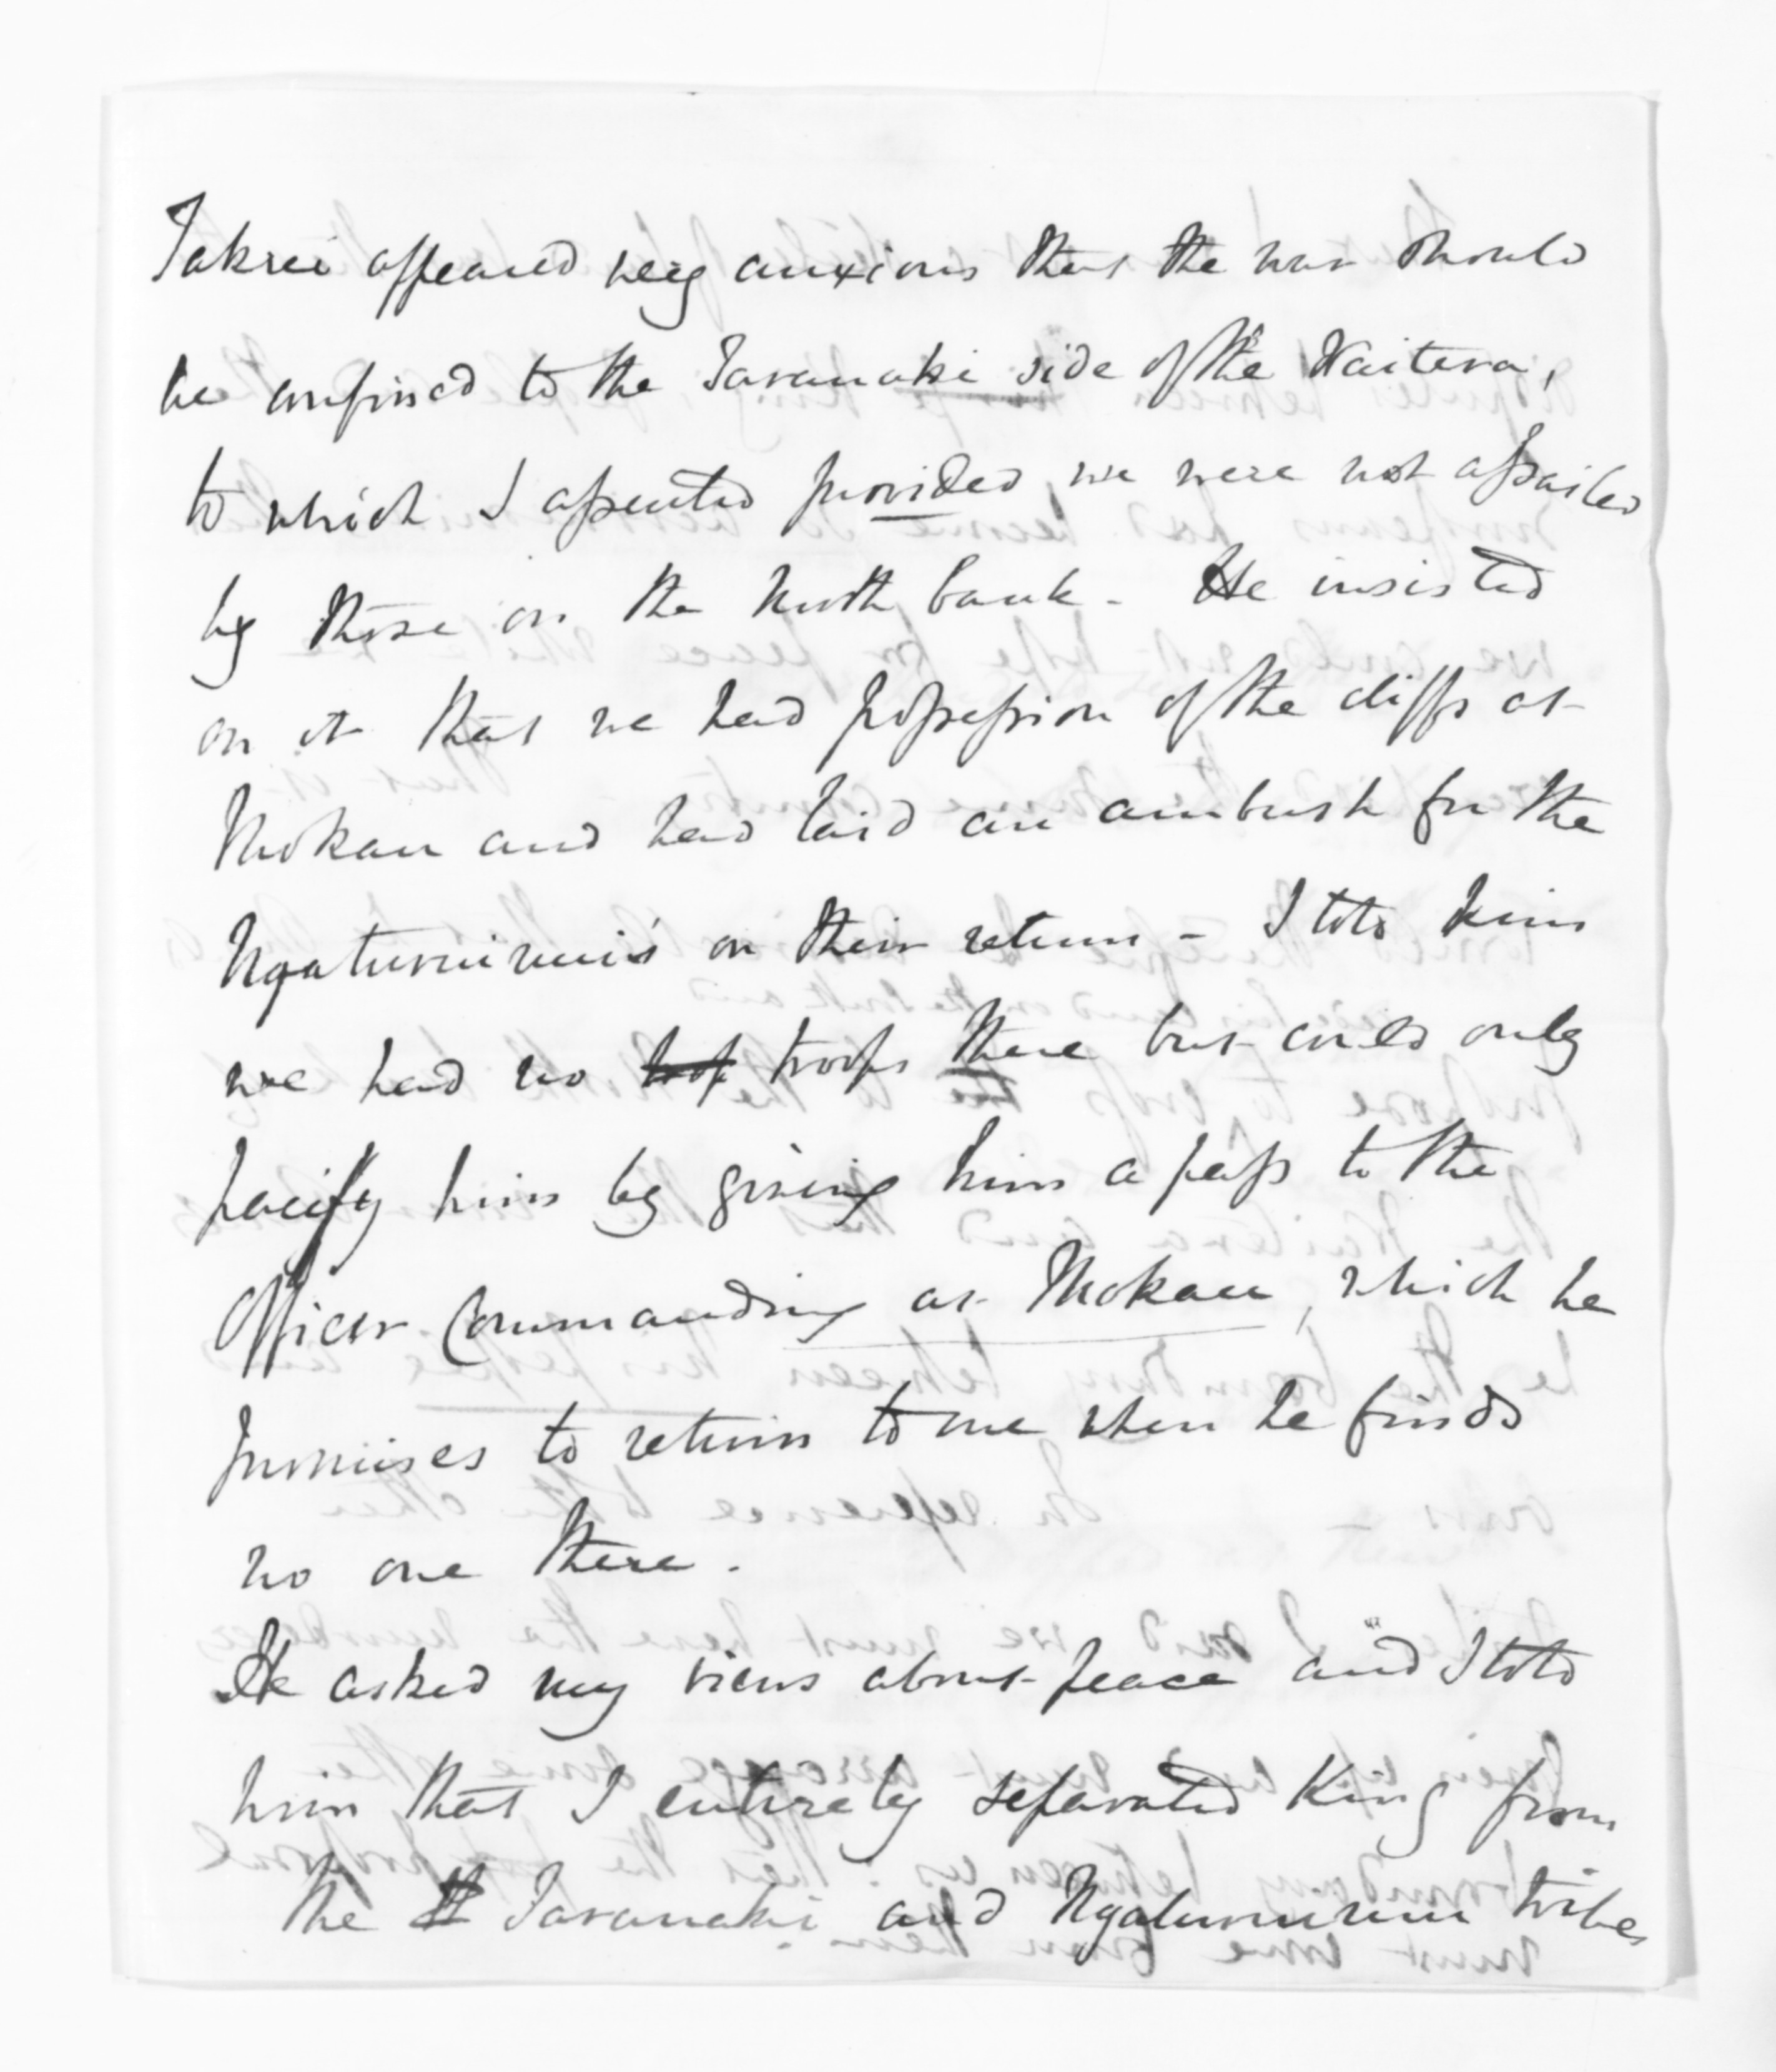 Takrei appeared very anxious that the war should
be confined to the Taranaki side of the Waitera,
to which I assented provided we were not assailed
by those on the North bank - He insisted
on it that we had possession of the cliffs at
Mokau and had laid an ambush for the
Ngatiruinui's on their return - I told him
we had no troops there but could only
pacify him by giving him a pass to the
Officer Commanding at Mokau, which he
promises to return to me when he finds
no one there.
He asked my views about peace and I told
him that I entirely separated King from
the Taranaki and Ngatiruinui tribes